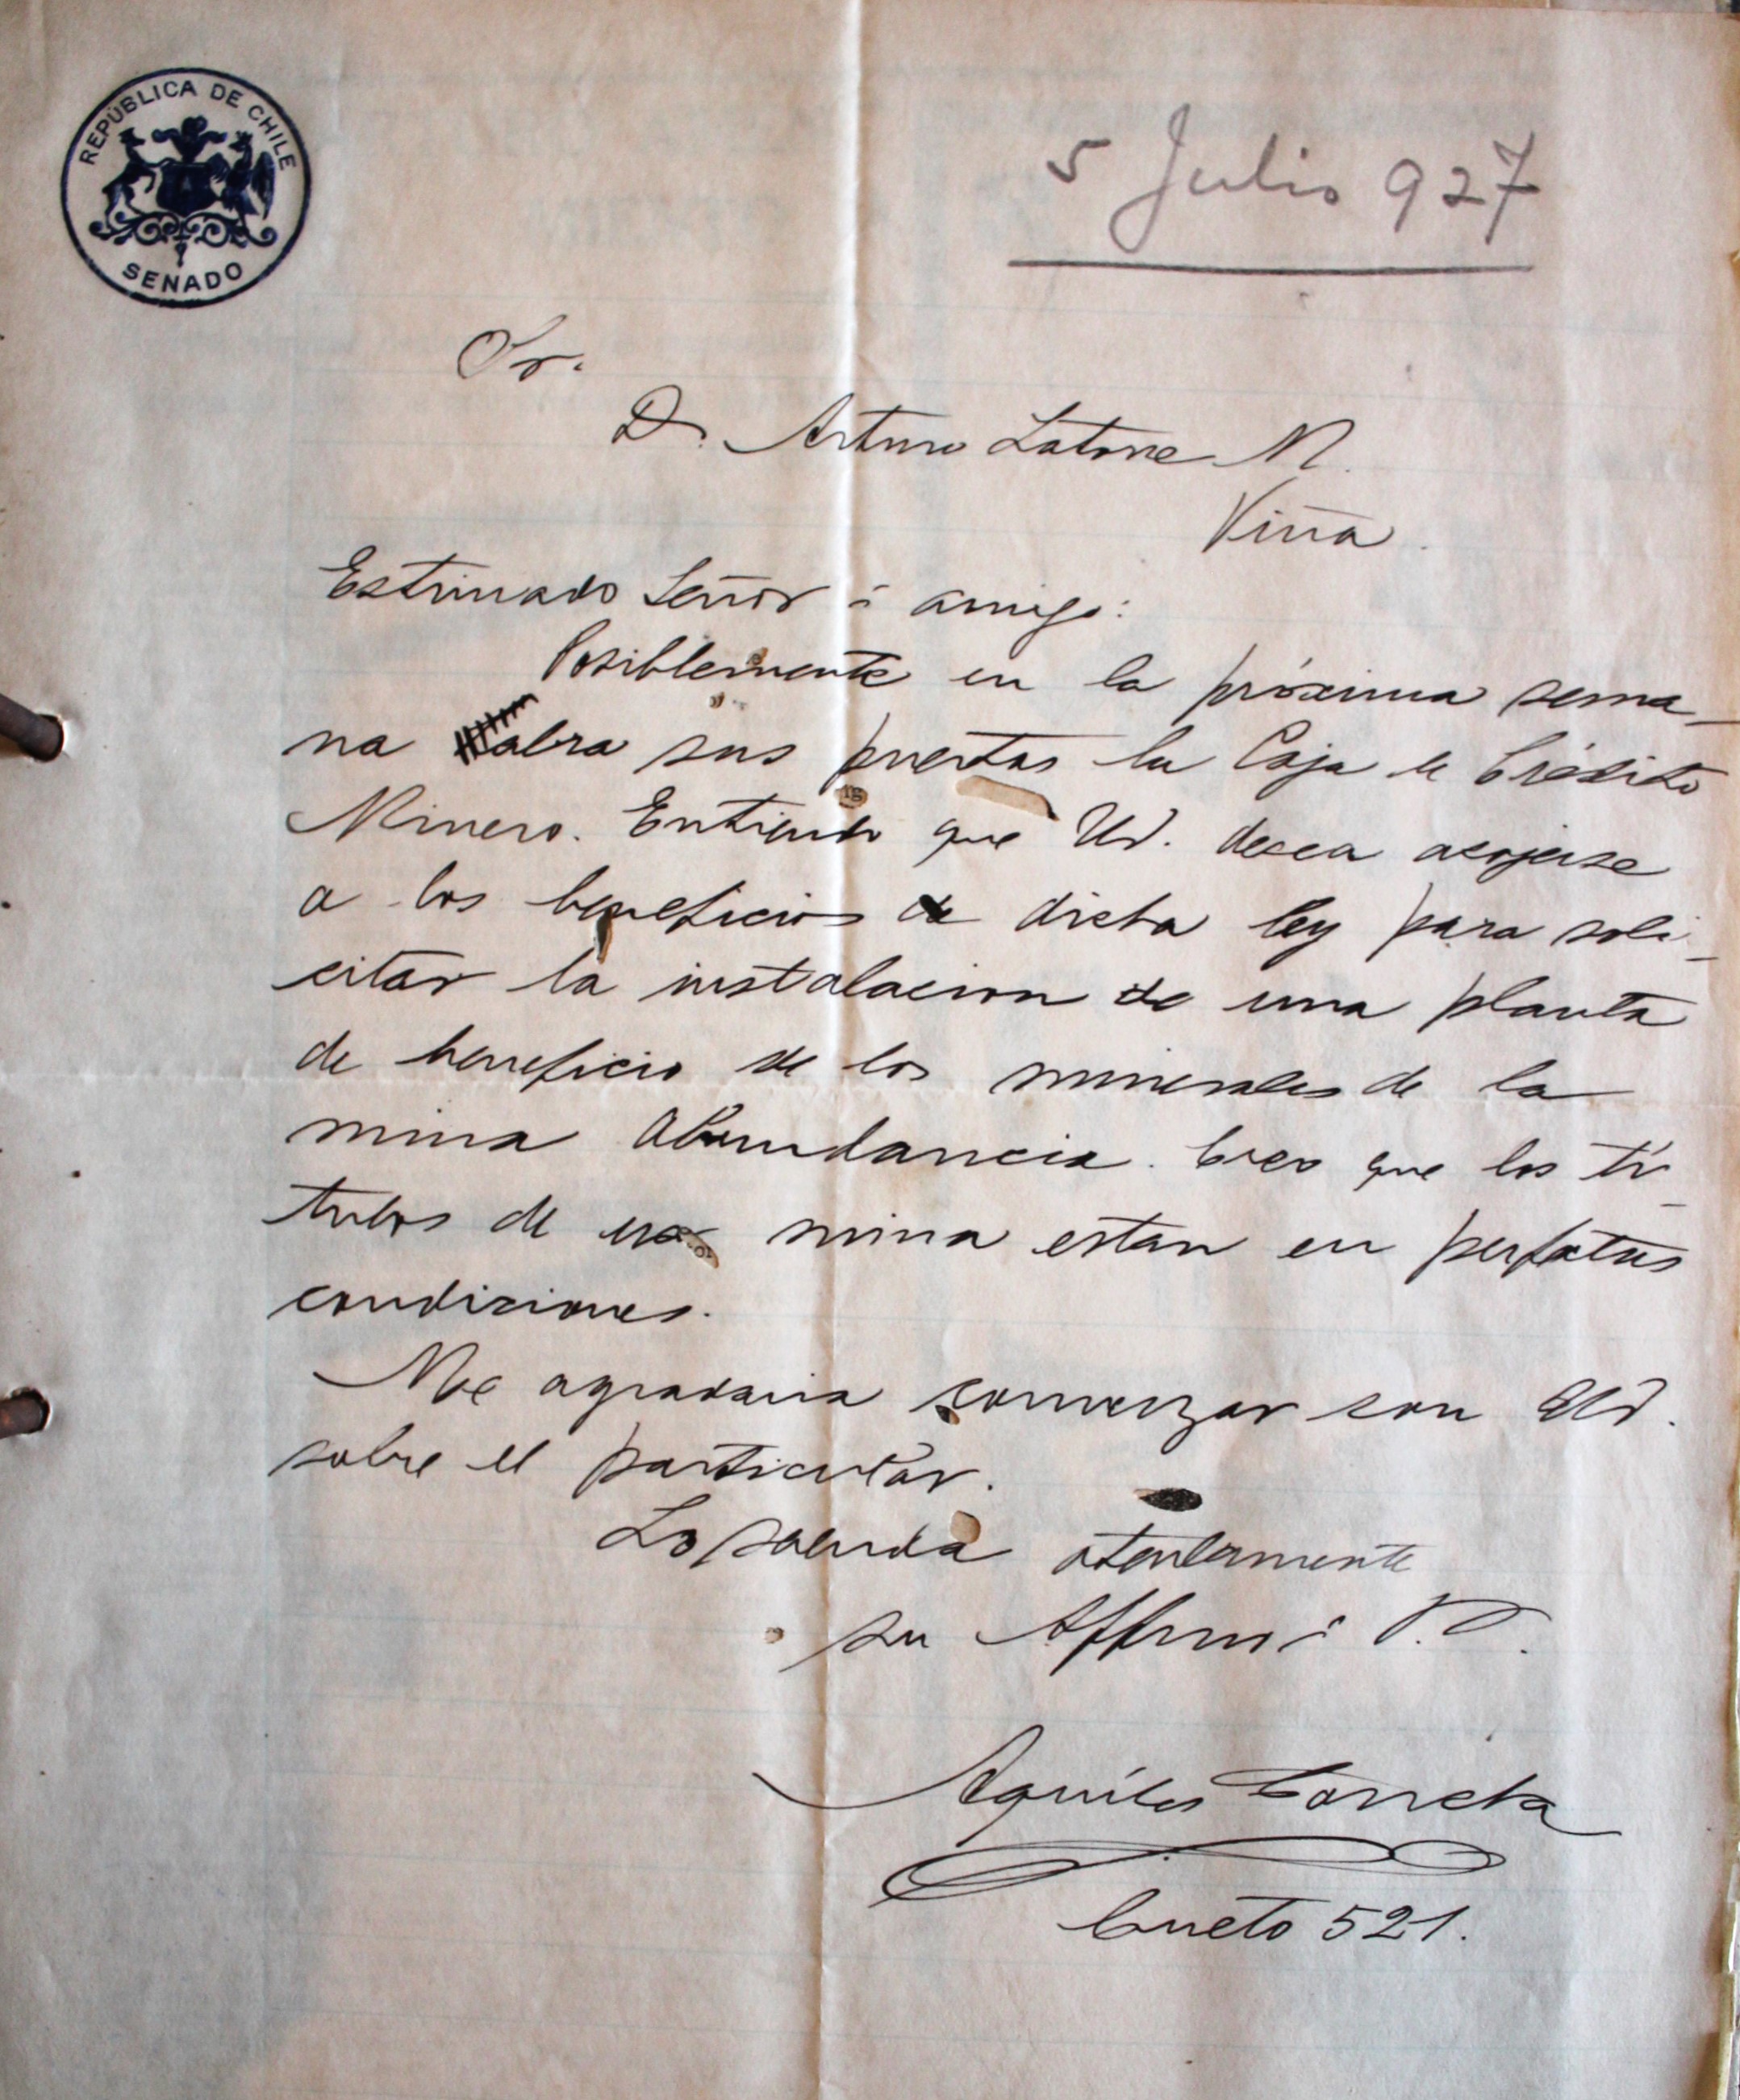 REPÚBLICA DE CHILE
SENADO
5 Julio 927
Sr.
D. Arturo Latorre M.
Viña.
Estimado Señor i amigo:
Posiblemente en la próxima sema-
na abra sus puertas la Caja de Crédito
Minero. Entiendo que Ud. desea acojerse
a los beneficios de dicha ley para soli-
citar la instalacion de una planta
de beneficio de los minerales de la
mina Abundancia. Creo que los tí-
tulos de esa mina estan en perfectas
condiciones.
Me agradaria conversar con Ud.
sobre el particular.
Lo saluda atentamente
su Affmo i
Aquiles Concha
Cueto 521.